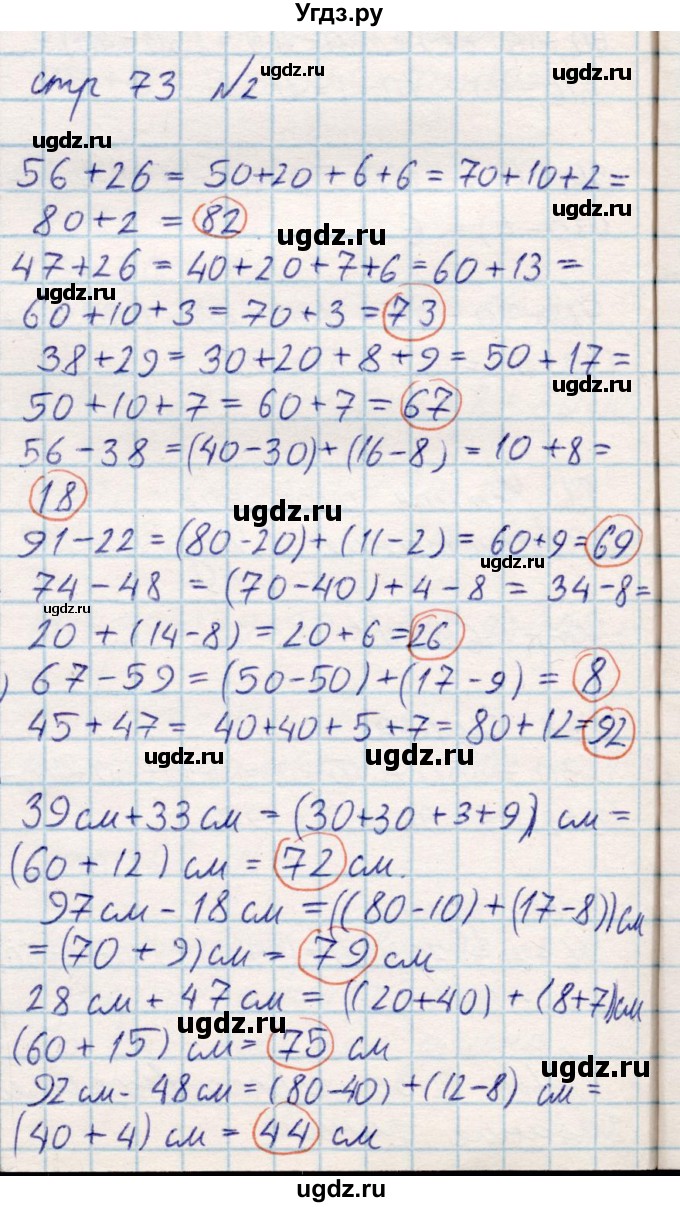 Угдз.ру
стр 73 №2
ugdz.ru
ugdz.ru
ugdz.ru
56+26 = 50+20+6+6 = 70+10+2 =
80+2 = 82
ugdz.ru
ugdz.ru
47+26 = 40+20+7+6 = 60+13 =
ugdz.ru
60+10+3 = 70+3 = 73
38+29 = 30+20+8+9 = 50+17 =
ugdz.ru
50+10+7 = 60+7 = 67
56-38 = (40-30)+(16-8) = 10+8 =
18
ugdz.ru
91-22 = (80-20)+(11-2) = 60+9 = 69
ugdz.ru
74-48 = (70-40)+4-8 = 34-8 =
ugdz.ru
20+(14-8) = 20+6 = 26
) 67-59 = (50-50)+(17-9) = 8
45+47 = 40+40+5+7 = 80+12 = 92
ugdz.ru
ugdz.ru
39см+33см = (30+30+3+9) см =
(60+12) см = 72 см.
97см - 18см = ((80-10)+(17-8))см
= (70+9)см = 79 см
28см + 47см = ((20+40)+(8+7)см
ugdz.ru
(60+15) см = 75 см
ugdz.ru
92см - 48см = (80-40)+(12-8) см =
(40+4) см = 44 см
ugdz.ru